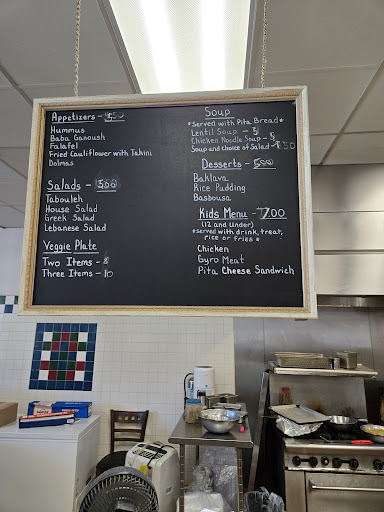 Appetizers - 4.50
Hummus
Baba Ganoush
Falafel
Fried Cauliflower with Tahini
Dolmas
Salads - 5.00
Tabouleh
House Salad
Greek Salad
Lebanese Salad
Veggie Plate
Two Items - 8
Three Items - 10
Soup
*Served with Pita Bread*
Lentil Soup -
Chicken Noodle Soup -
Soup and choice of Salad -
Desserts - 5.00
Baklava
Rice Pudding
Basbousa
Kids Menu - 7.00
(12 and Under)
*served with drink, treat,
rice or fries *
Chicken
Gyro Meat
Pita Cheese Sandwich